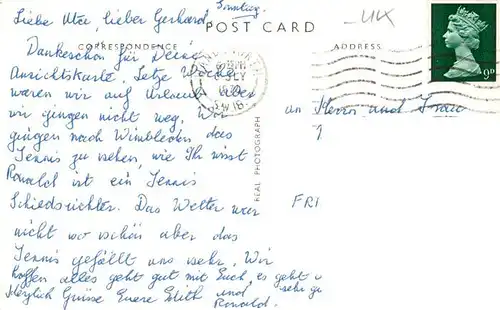 Sonntag.
Liebe Ute, lieber Gerhard,
POST CARD
CORRESPONDENCE
ADDRESS
UK
Dankeschön für Deine
Ansichtskarte, Letze Woche
waren wir auf Urlaub aber
wir gingen nicht weg. Wir
gingen nach Wimbledon das
Tennis zu sehen, wie Ihr wisst
Ronald ist ein Tennis
Schiedsrichter. Das Wetter war
nicht so schön aber das
Tennis gefällt uns sehr. Wir
hoffen alles geht gut mit Euch, es geht u
Herzlich Grüsse Euere Edith und sehr gu
Ronald.
REAL PHOTOGRAPH
JLY
S.W.18.
9D
an Herrn und Frau
FRI